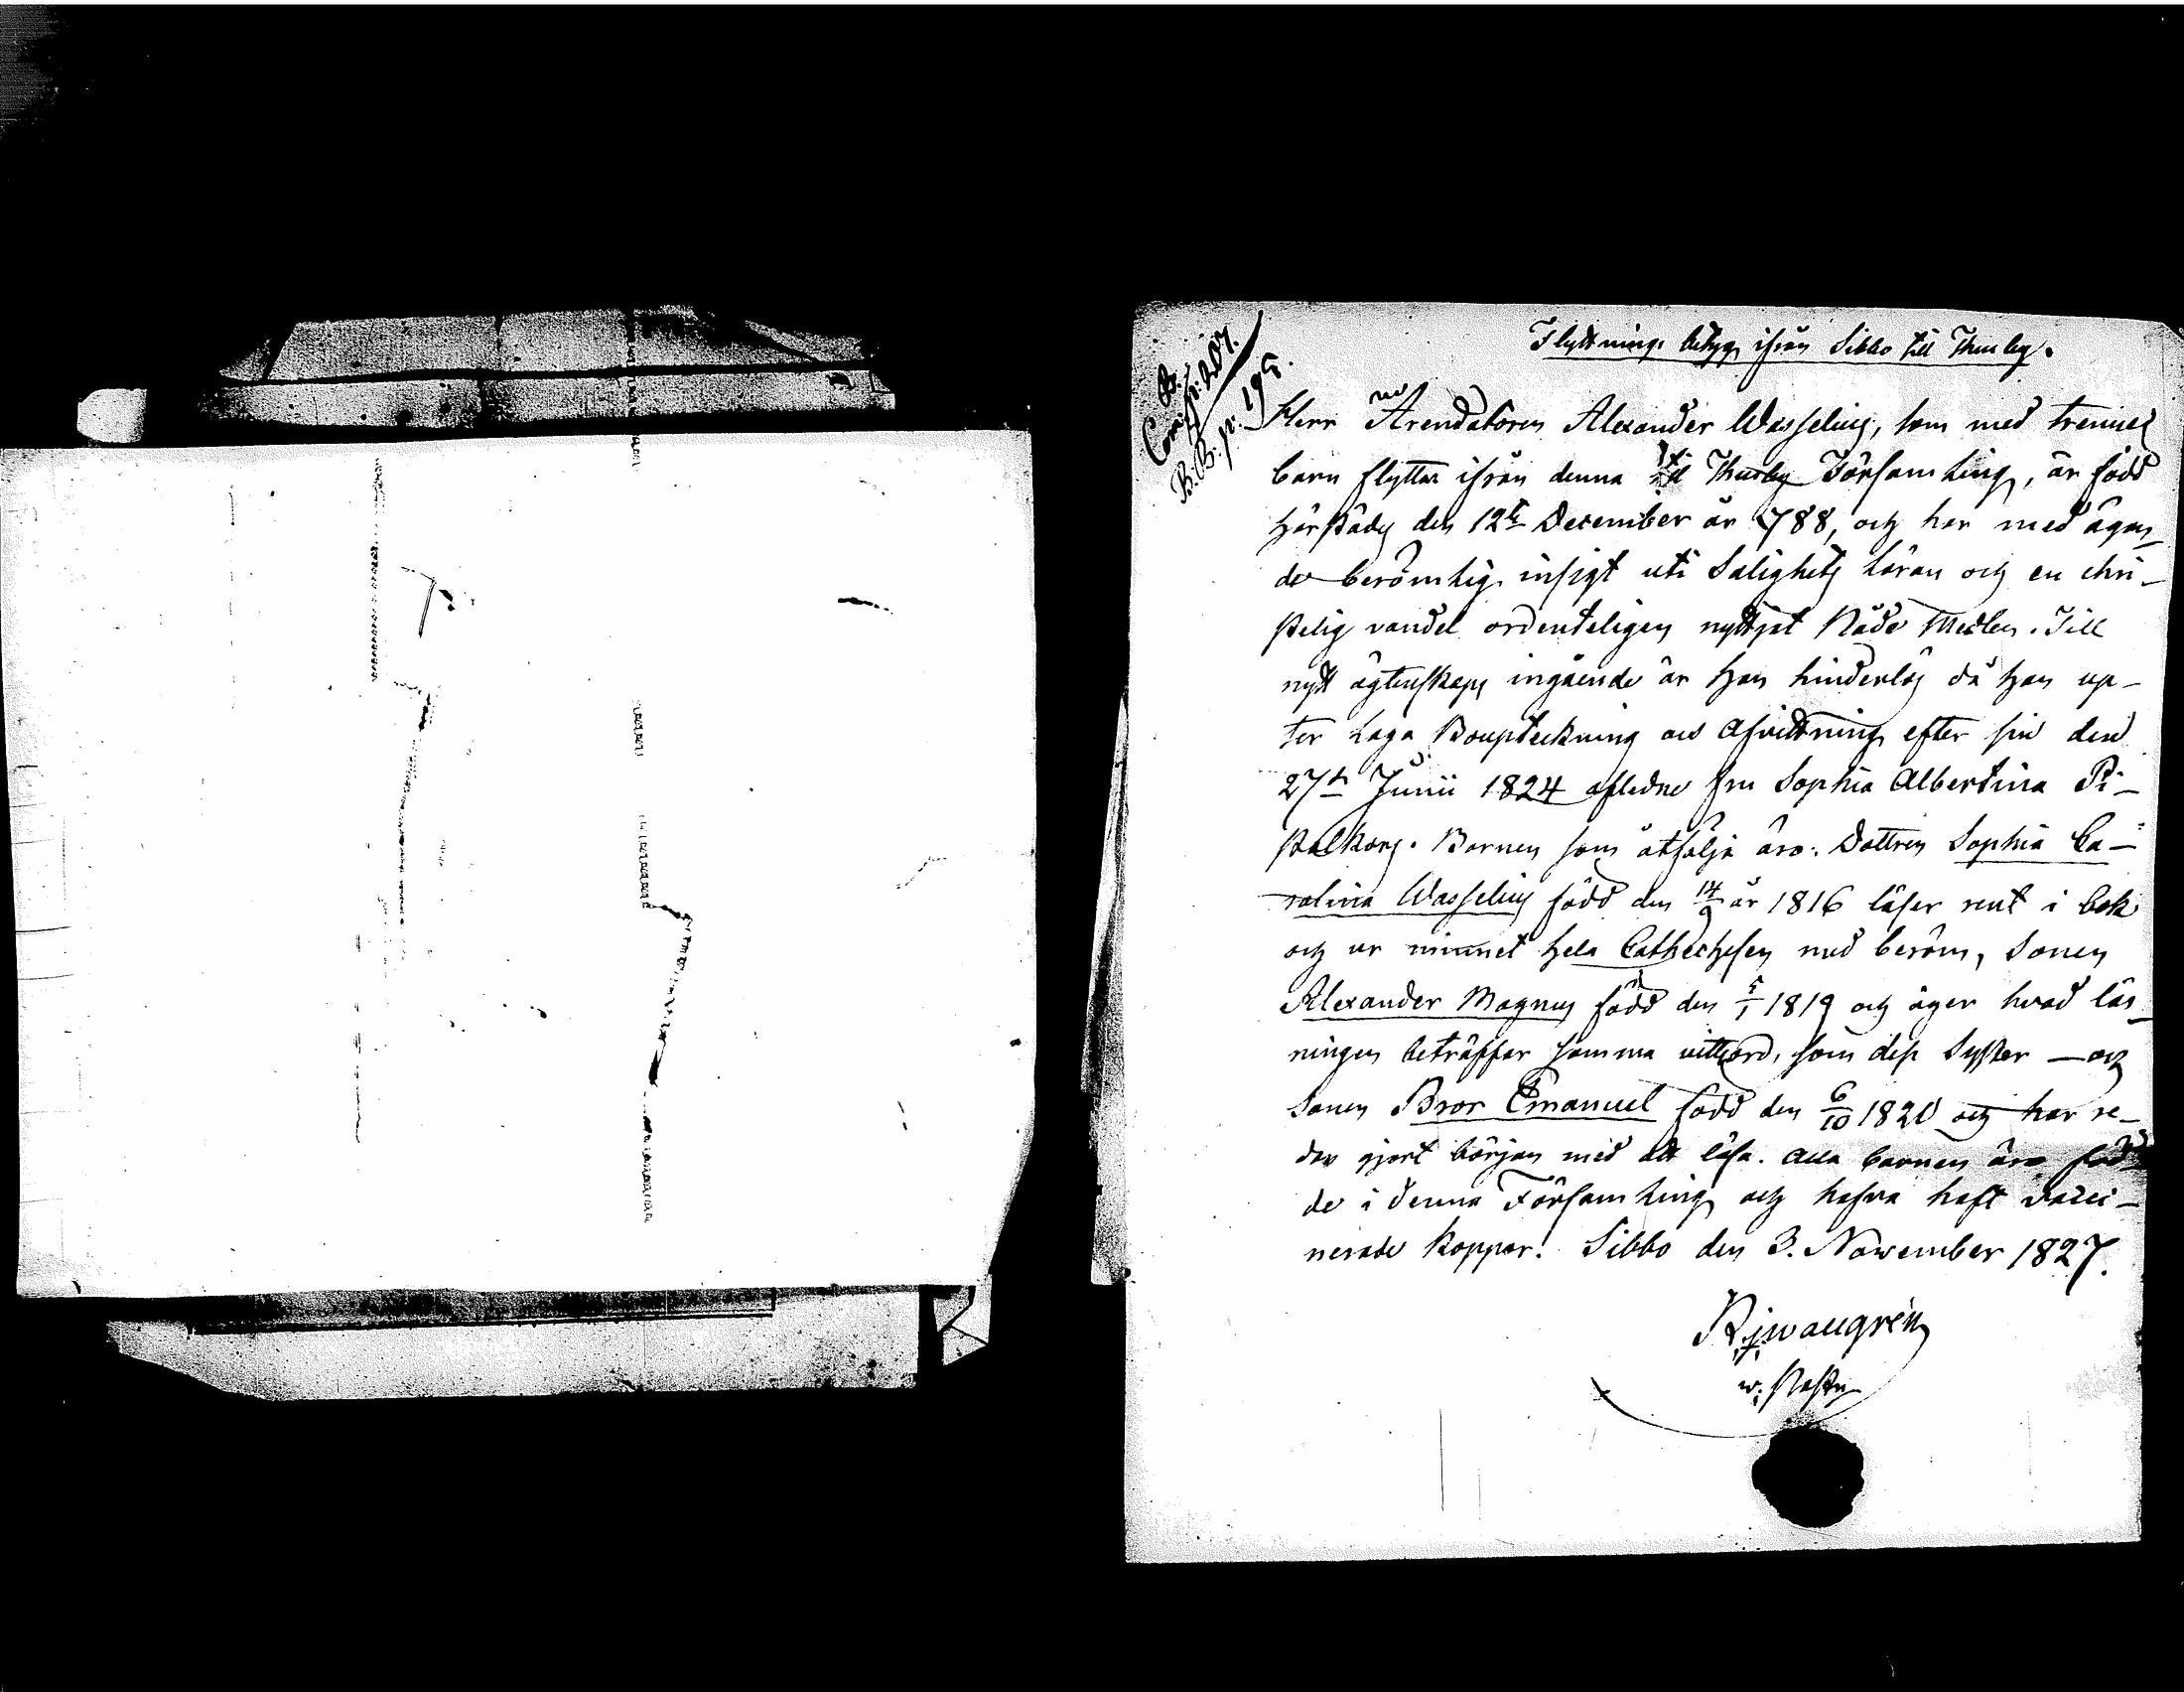 Flyttnings betyg ifrån Sibbo till Thusby.
Com. B. p. 207.
B.B. p. 195.
Herr Arendatoren Alexander Wasselius, som med trenne
barn flyttar ifrån denna till Thusby Församling, är född
härstädes den 12te December år 788, och har med ägan-
de berömlig insigt uti Salighets Läran och en chri-
stelig vandel ordenteligen nyttjat Nåde Medlen. Till
nytt ägtenskaps ingående är han hinderlös då han up-
ter Laga Bouptekning och Afvittring efter sin den
27de Junii 1824 aflidne fru Sophia Albertina Pi-
. Barnen som åtfölja äro: Dottren Sophia Ca-
rolina Wasselius född den 14/9 år 1816 läser rent i bok
och ur minnet hela Cathechesen med beröm, Sonen
Alexander Magnus född den 5/1 1819 och äger hvad läs-
ningen beträffar samma vittsord, som dess Syster — och
Sonen Bror Emanuel född den 6/10 1820 och har re-
dan gjort början med att läsa. Alla barnen äro föd-
de i denna Församling och hafva haft vacci-
nerade koppor. Sibbo den 3. November 1827.
w. Pastor